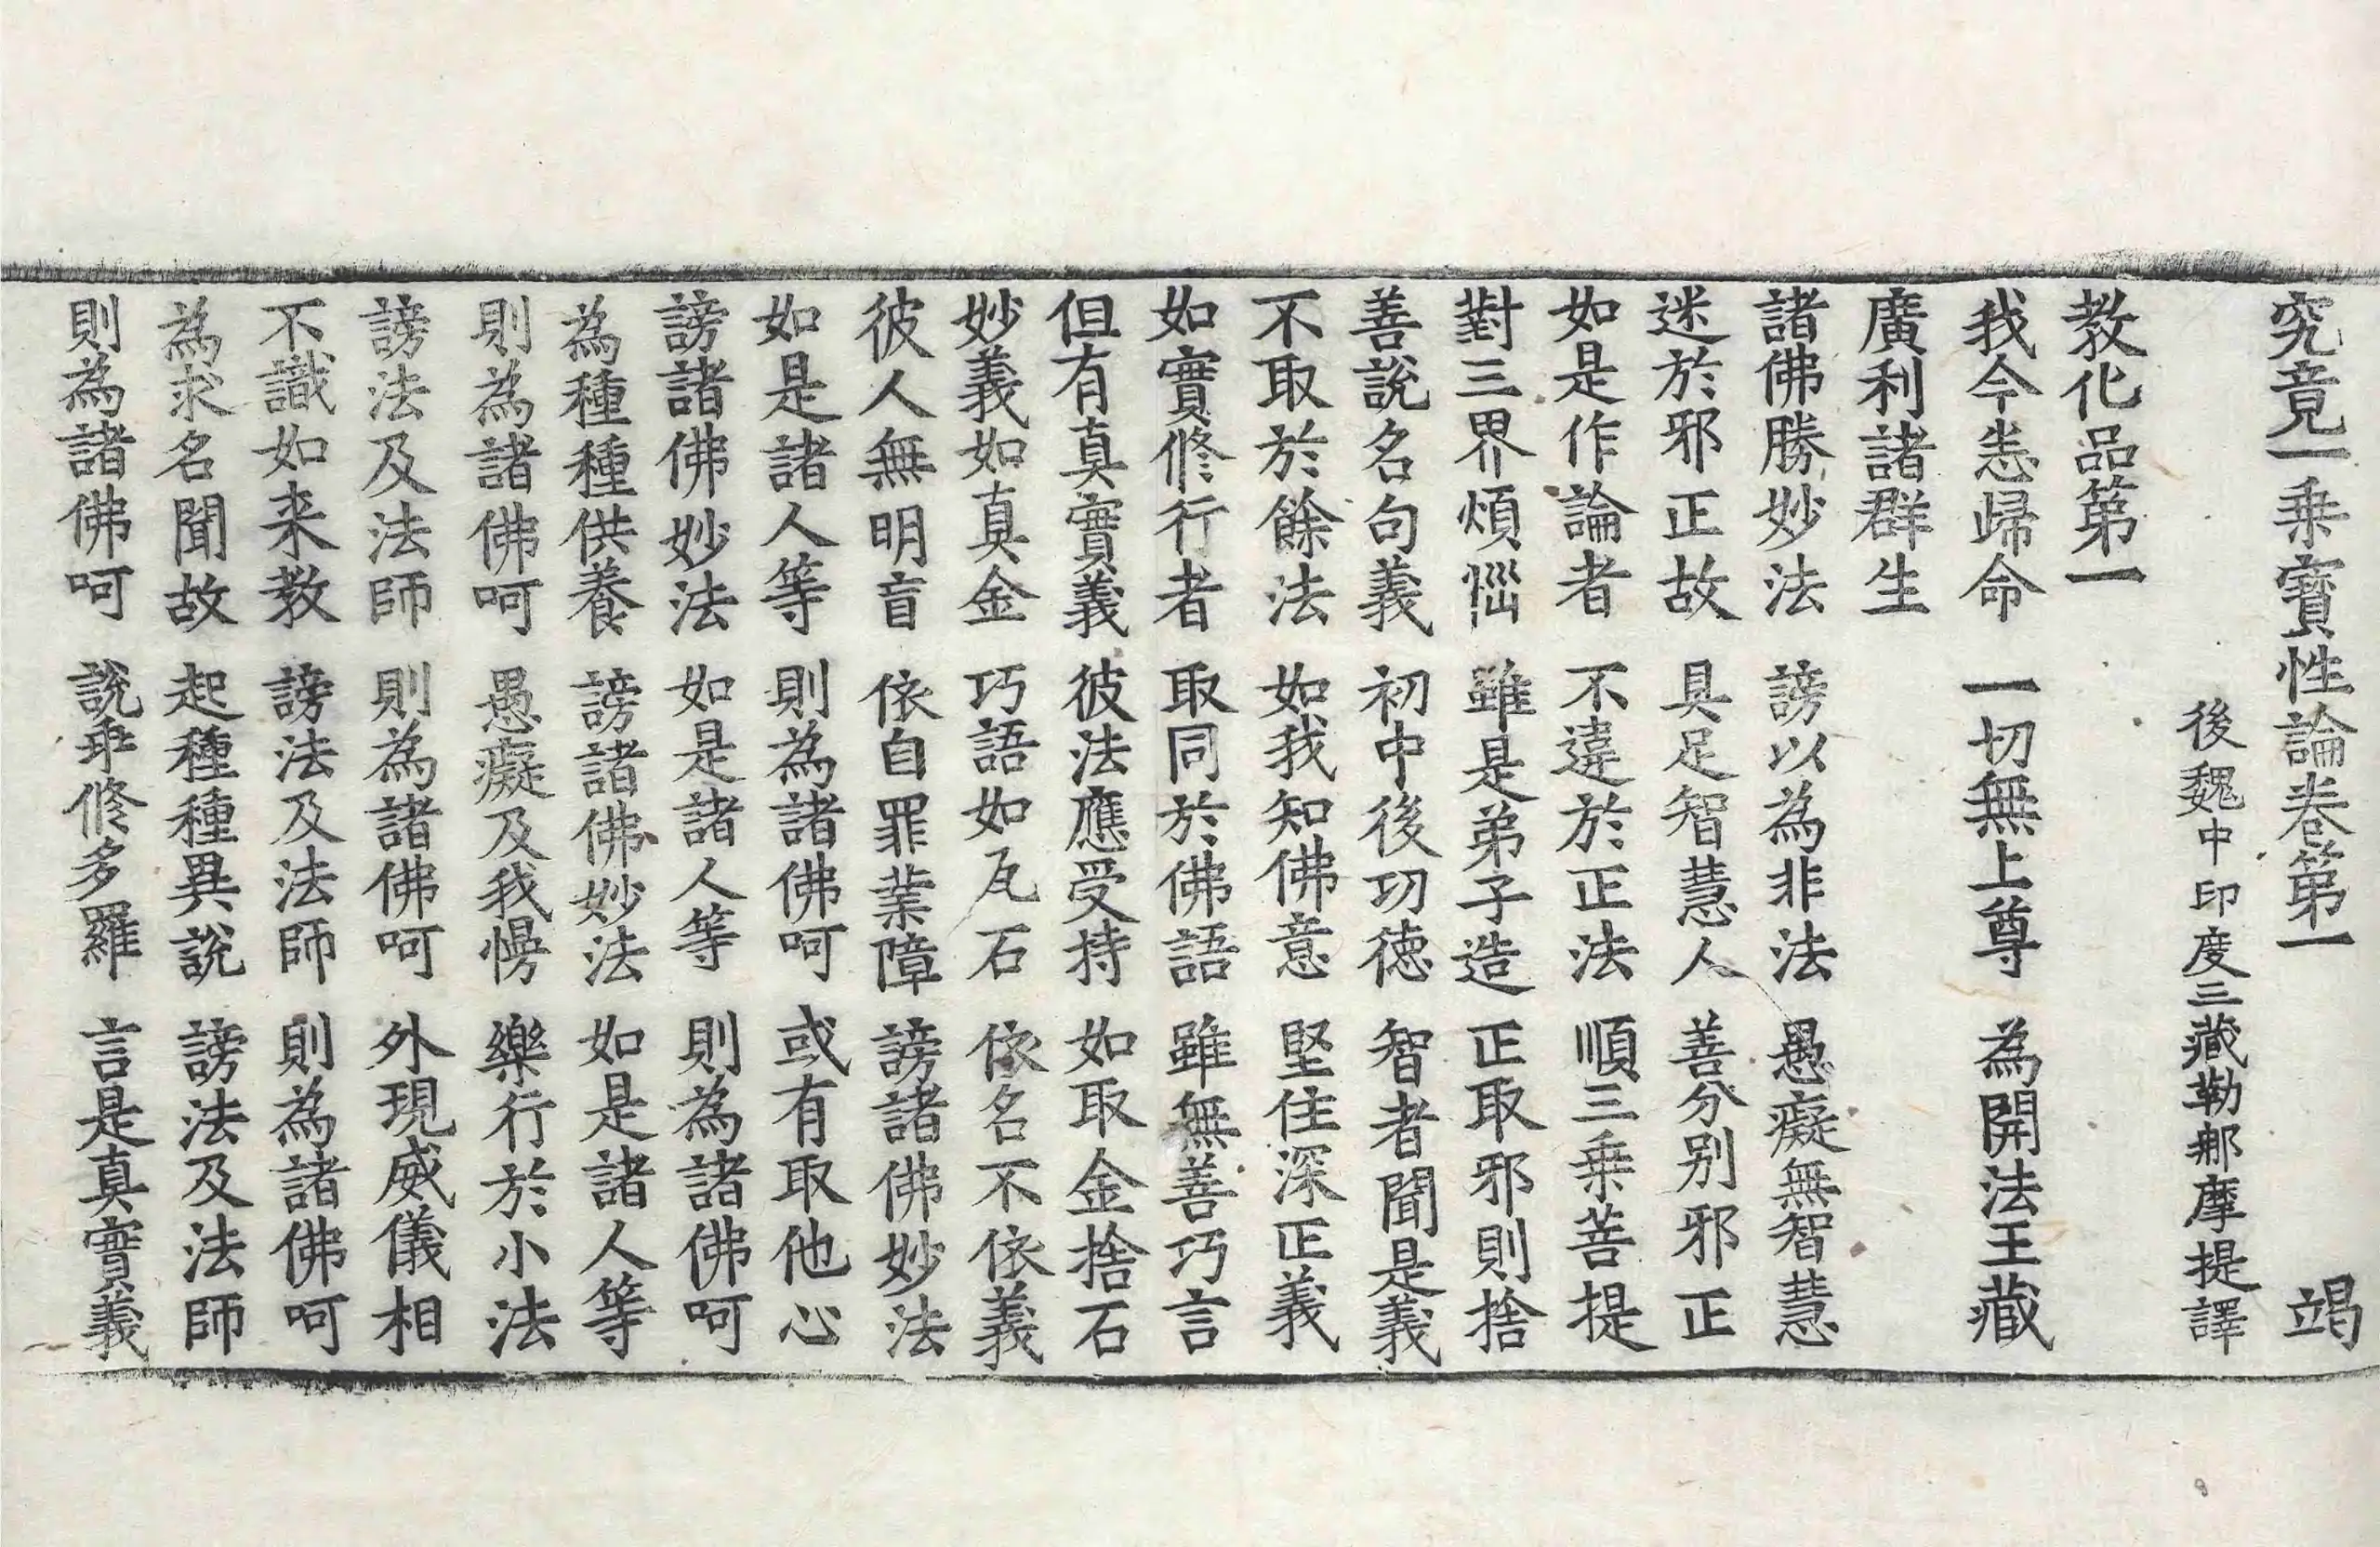 究竟一乘寶性論卷第一 竭
後魏中印度三藏勒那摩提譯
教化品第一
我今悉歸命 一切無上尊 為開法王藏
廣利諸群生
諸佛勝妙法 謗以為非法 愚癡無智慧
迷於邪正故 具足智慧人 善分別邪正
如是作論者 不違於正法 順三乗菩提
對三界煩惱 雖是弟子造 正取邪則捨
善說名句義 初中後功德 智者聞是義
不取於餘法 如我知佛意 堅住深正義
如實修行者 取同於佛語 雖無善巧言
但有真實義 彼法應受持 如取金捨石
妙義如真金 巧語如瓦石 依名不依義
彼人無明盲 依自罪業障 謗諸佛妙法
如是諸人等 則為諸佛呵 或有取他心
謗諸佛妙法 如是諸人等 則為諸佛呵
為種種供養 謗諸佛妙法 如是諸人等
則為諸佛呵 愚癡及我慢 樂行於小法
謗法及法師 則為諸佛呵 外現威儀相
不識如来教 謗法及法師 則為諸佛呵
為求名聞故 起種種異說 謗法及法師
則為諸佛呵 說乖修多羅 言是真實義